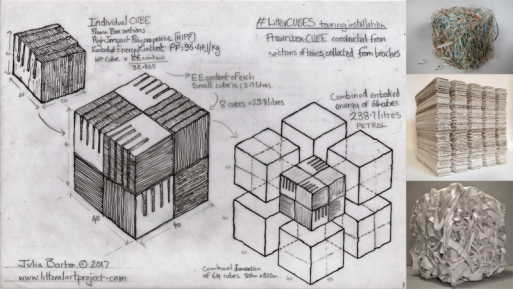 Individual CUBE
Prawn Box sections
High Impact Polypropylene (HIPP)
Embodied Energy Content PP: 95.4 MJ/kg
Wt Cube x EE content
20
# LitterCUBES touring installation
Prawn box CUBE constructed from
sections of boxes, collected from beaches
EE content of each
small cube is: 3.7 litres
8 cubes =
Combined embodied
energy of 64 cubes
238.7 litres
PETROL
40
40
Julia Barton © 2017
www.littoralartproject.com
Combined dimension
of 64 cubes